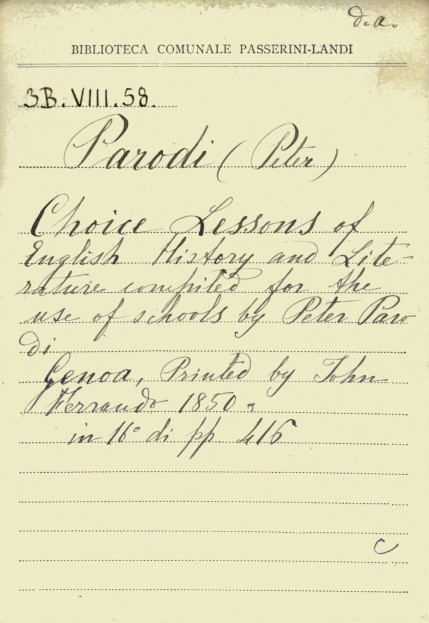 d.a.
BIBLIOTECA COMUNALE PASSERINI-LANDI
3B. VIII. 58.
Parodi (Peter)
Choice Lessons of
English History and Lite-
rature compiled for the
use of schools by Peter Paro
di
Genoa, Printed by John
Ferrando 1850.
in 16° di pp 416
C